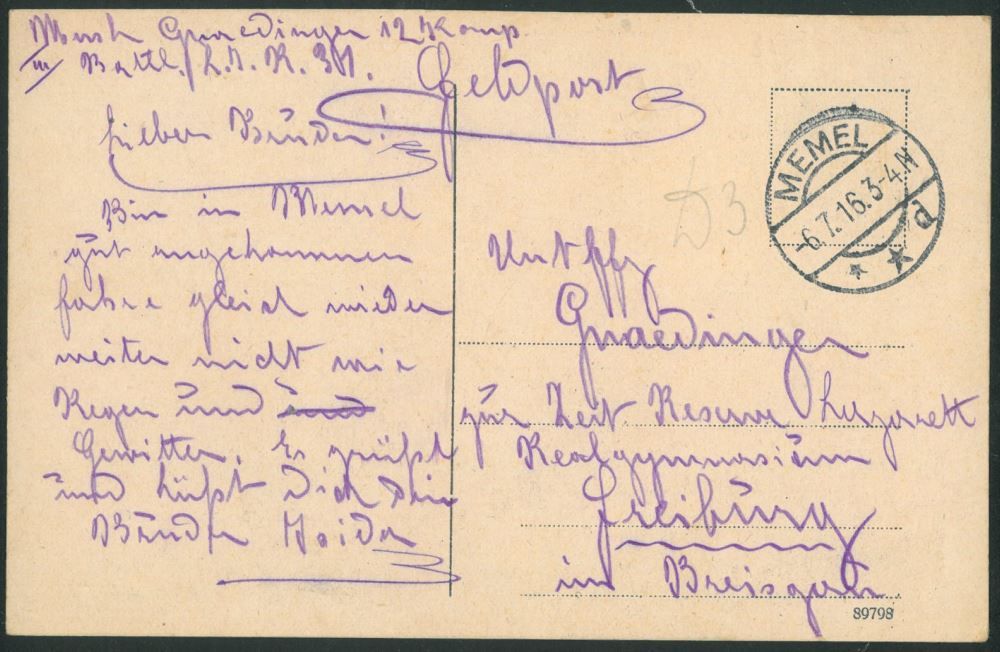 Musk Gnaedinger 12 Komp.
III Battl. L. I. R. 31.
Feldpost
Lieber Brüder!
Bin in Memel
gut angekommen
fahre gleich wieder
weiter nicht wie
Regen und
Gewitter. Es grüßt
und küßt Dich Dein
Brüder
MEMEL
-6.7.16.3-4.N
d
D3
Untffz
Gnaedinger
zür Zeit Reserve Lazarett
Realgymnasium
Freiburg
im Breisgau
89798